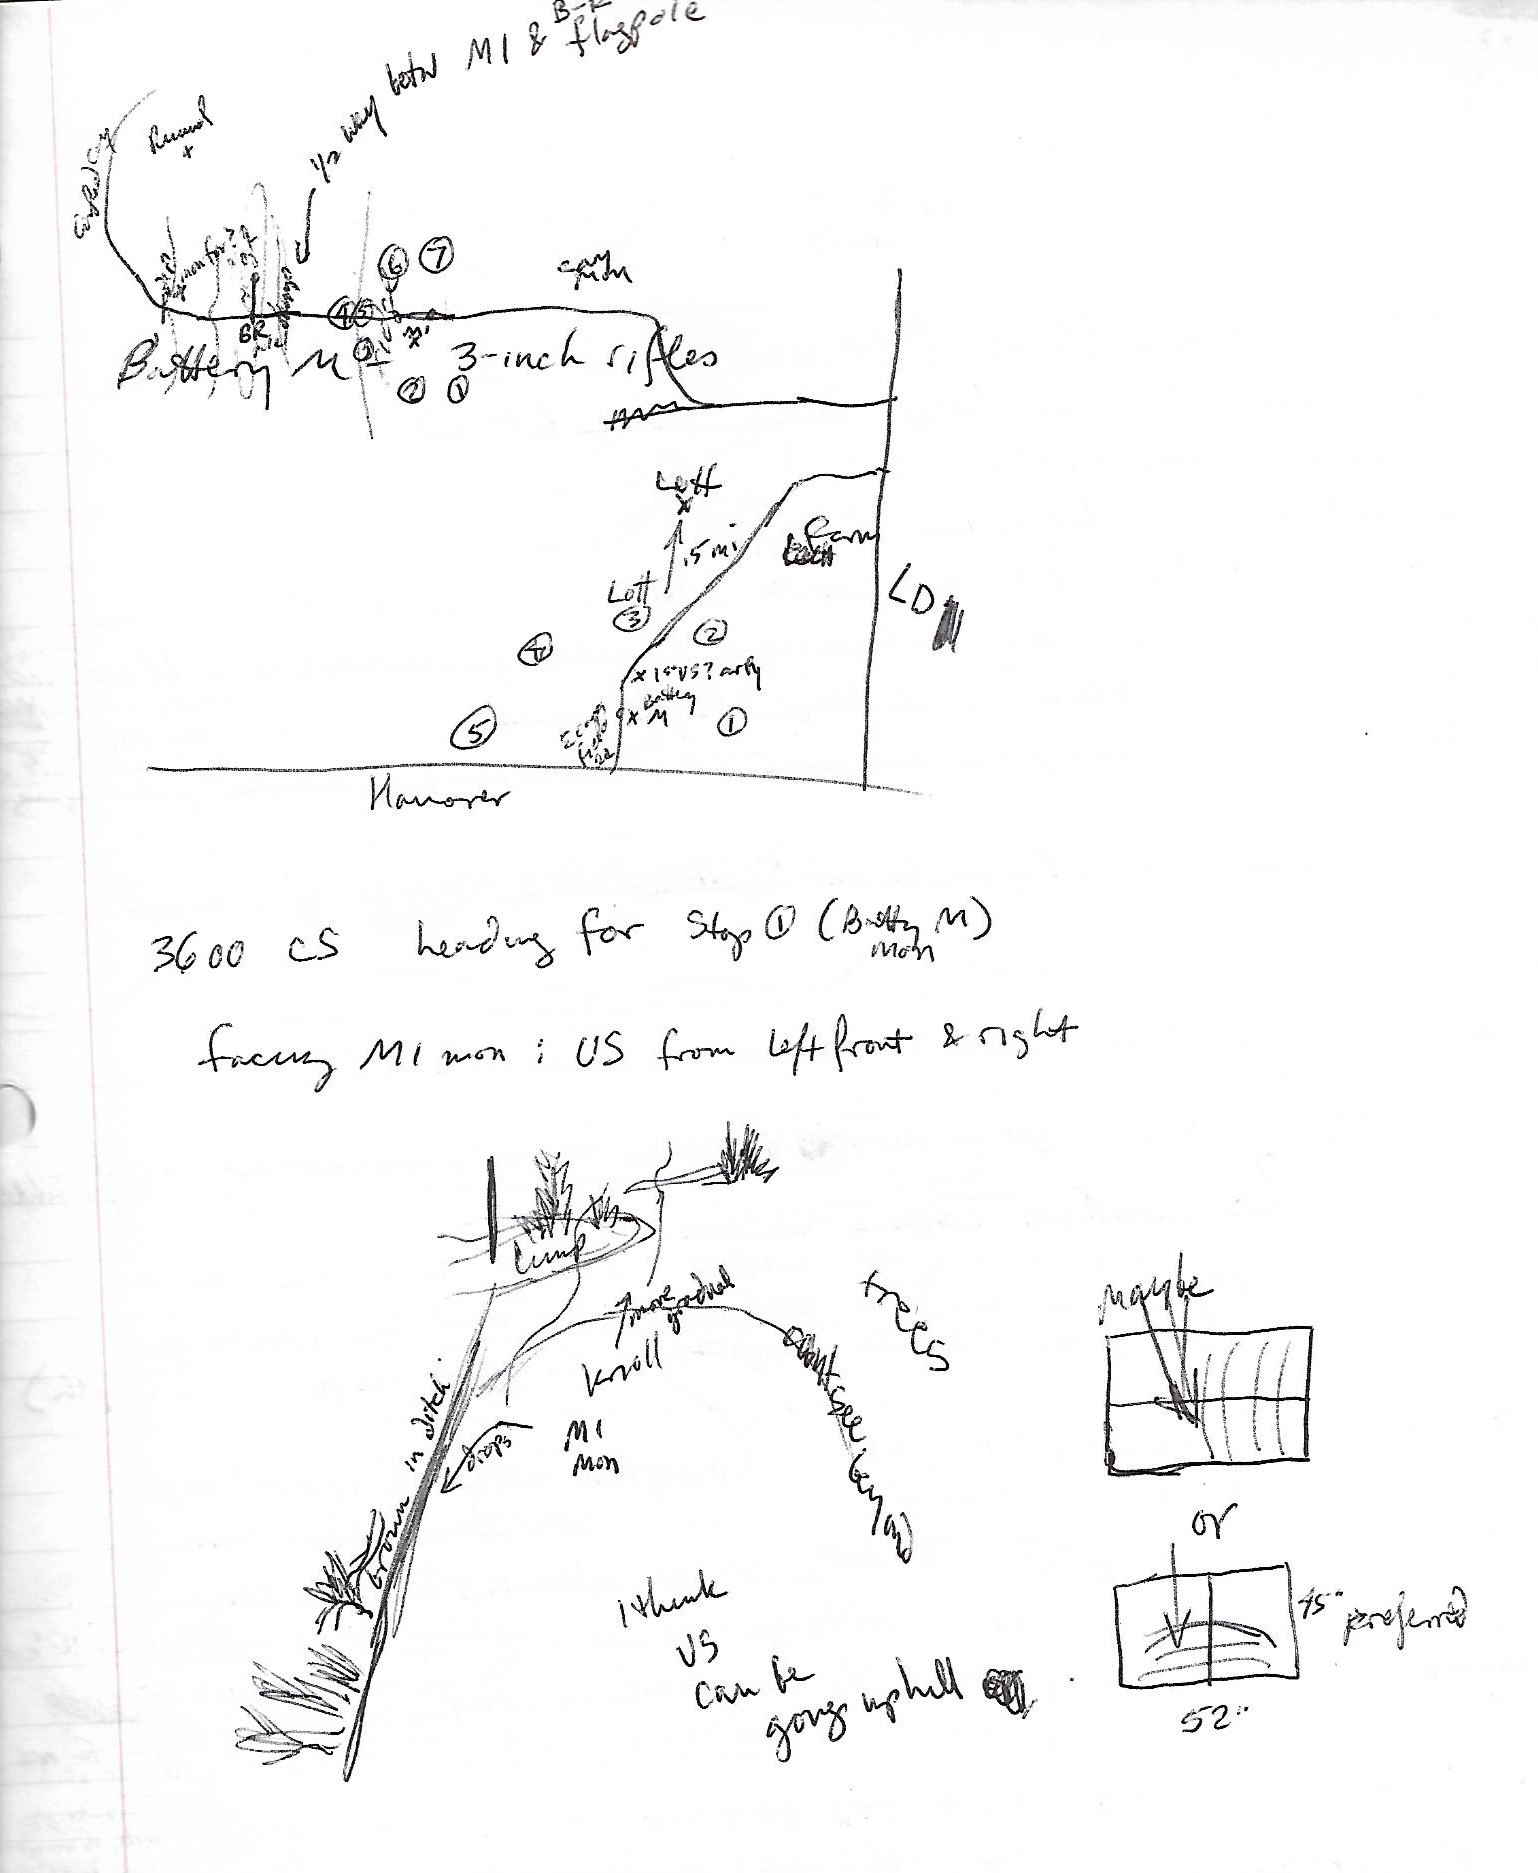 B-R
1/2 way betw M1 & flagpole
Rummel
x
Gregg
mon for?
BR
6 7
4 5
3
2 1
Battery M - 3-inch rifles
Lott
x
.5 mi
Farm
Lott
3
2
4
LD
x 1st US? arty
x Battery
M
1
5
E Cav
Hanover
3600 CS heading for Stop 1 (Batty M)
mon
facing MI mon : US from left front & right
Lump
more
gradual
trees
knoll
can't see beyond
in ditch
drops
MI
mon
brown
Maybe
or
i think
US
can be
going uphill
45" preferred
52"